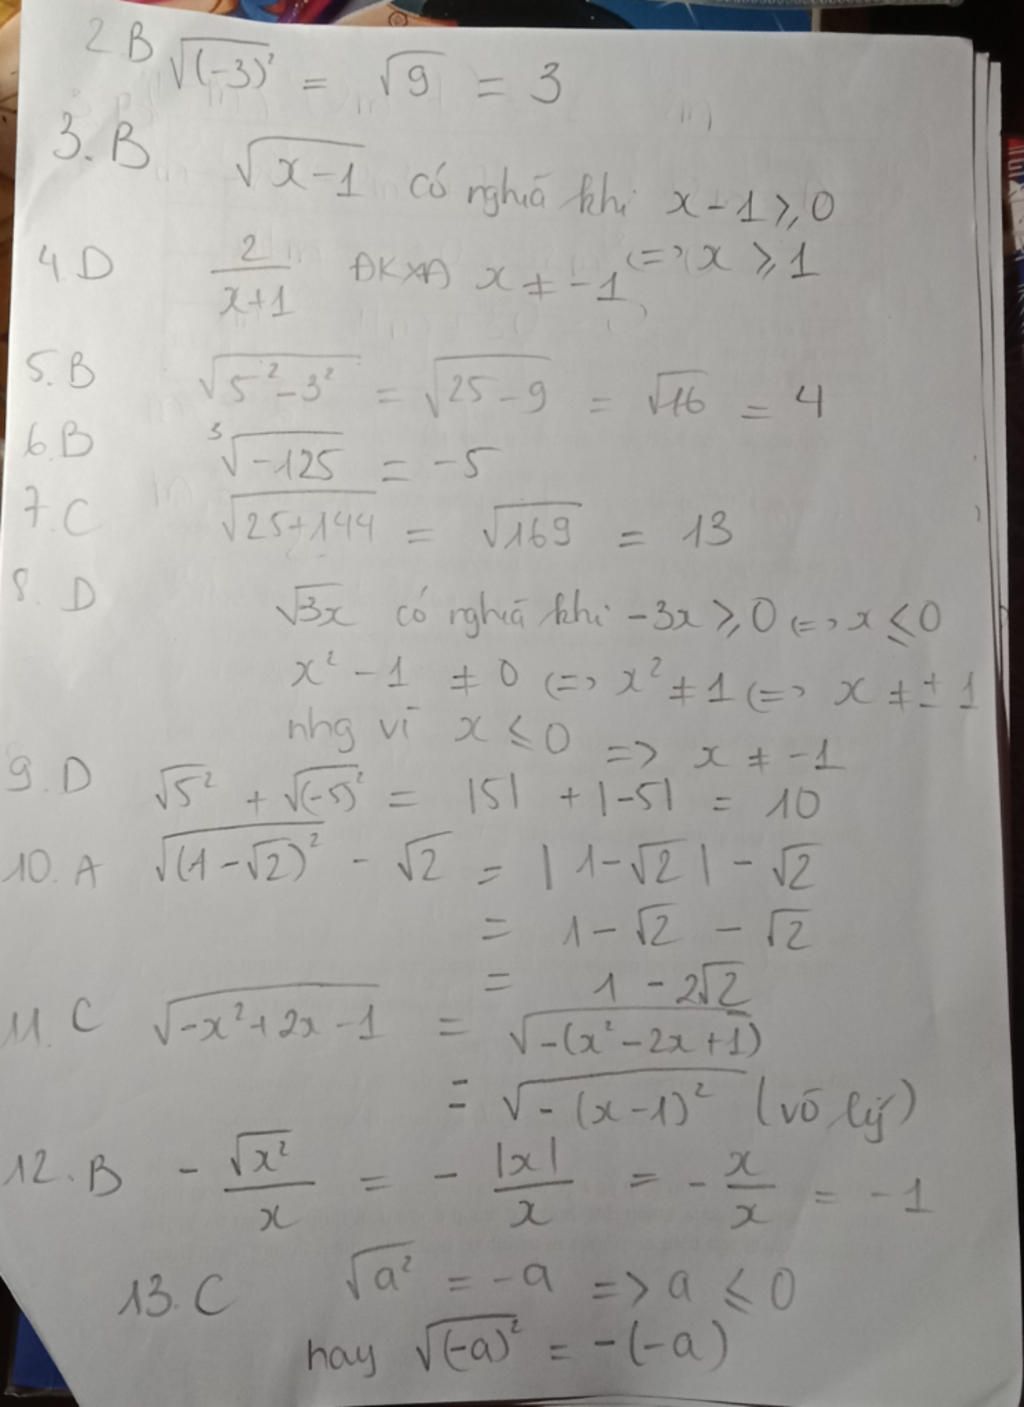 2B √(-3)² = √9 = 3
3. B √x-1 có nghĩa khi x-1 ≥ 0
<=> x ≥ 1
4. D 2/(x+1) ĐKXĐ x ≠ -1
5. B √5²-3² = √25-9 = √16 = 4
6. B ³√-125 = -5
7. C √25+144 = √169 = 13
8. D √3x có nghĩa khi -3x ≥ 0 <=> x ≤ 0
x² - 1 ≠ 0 <=> x² ≠ 1 <=> x ≠ ± 1
nhg vì x ≤ 0 => x ≠ -1
9. D √5² + √(-5)² = |5| + |-5| = 10
10. A √(1-√2)² - √2 = | 1-√2 | - √2
= 1 - √2 - √2
= 1 - 2√2
11. C √-x²+2x-1 = √-(x²-2x+1)
= √-(x-1)² (vô lý)
12. B - √x²/x = - |x|/x = - x/x = -1
13. C √a² = -a => a ≤ 0
hay √(-a)² = -(-a)